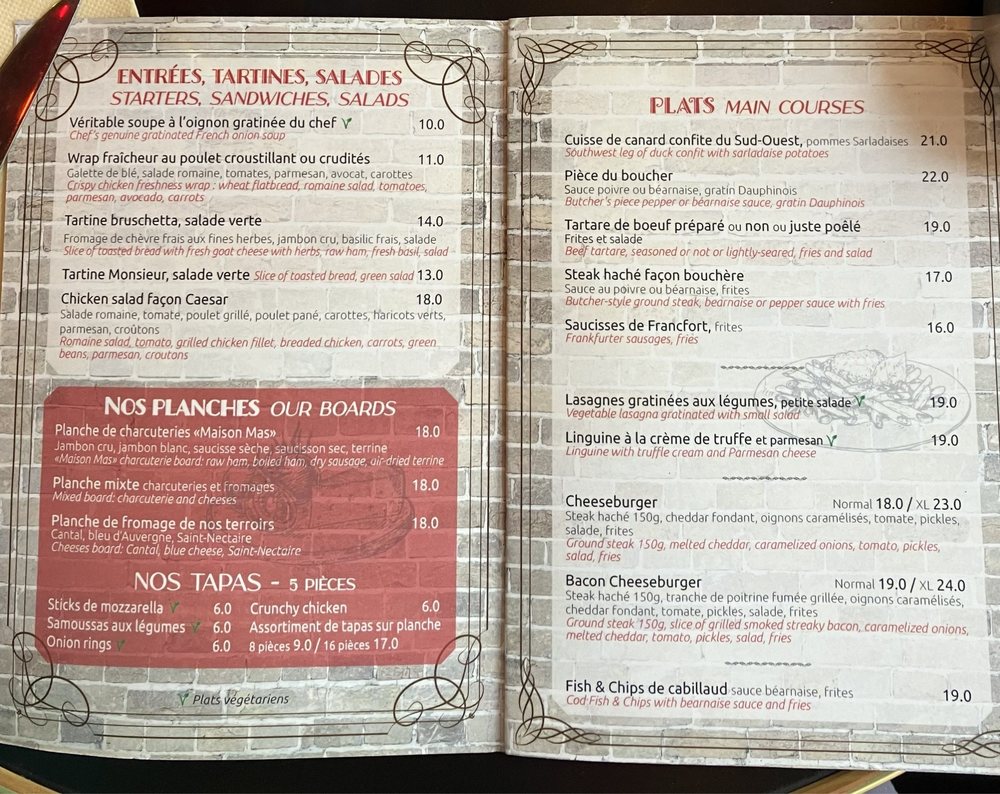 ENTRÉES, TARTINES, SALADES
STARTERS, SANDWICHES, SALADS
Véritable soupe à l'oignon gratinée du chef 10.0
Chef's genuine gratinated French onion soup
Wrap fraîcheur au poulet croustillant ou crudités 11.0
Galette de blé, salade romaine, tomates, parmesan, avocat, carottes
Crispy chicken freshness wrap : wheat flatbread, romaine salad, tomatoes,
parmesan, avocado, carrots
Tartine bruschetta, salade verte 14.0
Fromage de chèvre frais aux fines herbes, jambon cru, basilic frais, salade
Slice of toasted bread with fresh goat cheese with herbs, raw ham, fresh basil, salad
Tartine Monsieur, salade verte Slice of toasted bread, green salad 13.0
Chicken salad façon Caesar 18.0
Salade romaine, tomate, poulet grillé, poulet pané, carottes, haricots verts,
parmesan, croûtons
Romaine salad, tomato, grilled chicken fillet, breaded chicken, carrots, green
beans, parmesan, croutons
NOS PLANCHES OUR BOARDS
Planche de charcuteries «Maison Mas» 18.0
Jambon cru, jambon blanc, saucisse sèche, saucisson sec, terrine
«Maison Mas» charcuterie board: raw ham, boiled ham, dry sausage, air-dried terrine
Planche mixte charcuteries et fromages 18.0
Mixed board: charcuterie and cheeses
Planche de fromage de nos terroirs 18.0
Cantal, bleu d'Auvergne, Saint-Nectaire
Cheeses board: Cantal, blue cheese, Saint-Nectaire
NOS TAPAS - 5 PIÈCES
Sticks de mozzarella 6.0 Crunchy chicken 6.0
Samoussas aux légumes 6.0 Assortiment de tapas sur planche
Onion rings 6.0 8 pièces 9.0 / 16 pièces 17.0
Plats végétariens
PLATS MAIN COURSES
Cuisse de canard confite du Sud-Ouest, pommes Sarladaises 21.0
Southwest leg of duck confit with sarladaise potatoes
Pièce du boucher 22.0
Sauce poivre ou béarnaise, gratin Dauphinois
Butcher's piece pepper or béarnaise sauce, gratin Dauphinois
Tartare de boeuf préparé ou non ou juste poêlé 19.0
Frites et salade
Beef tartare, seasoned or not or lightly-seared, fries and salad
Steak haché façon bouchère 17.0
Sauce au poivre ou béarnaise, frites
Butcher-style ground steak, bearnaise or pepper sauce with fries
Saucisses de Francfort, frites 16.0
Frankfurter sausages, fries
Lasagnes gratinées aux légumes, petite salade 19.0
Vegetable lasagna gratinated with small salad
Linguine à la crème de truffe et parmesan 19.0
Linguine with truffle cream and Parmesan cheese
Cheeseburger Normal 18.0 / XL 23.0
Steak haché 150g, cheddar fondant, oignons caramélisés, tomate, pickles,
salade, frites
Ground steak 150g, melted cheddar, caramelized onions, tomato, pickles,
salad, fries
Bacon Cheeseburger Normal 19.0 / XL 24.0
Steak haché 150g, tranche de poitrine fumée grillée, oignons caramélisés,
cheddar fondant, tomate, pickles, salade, frites
Ground steak 150g, slice of grilled smoked streaky bacon, caramelized onions,
melted cheddar, tomato, pickles, salad, fries
Fish & Chips de cabillaud sauce béarnaise, frites 19.0
Cod Fish & Chips with bearnaise sauce and fries